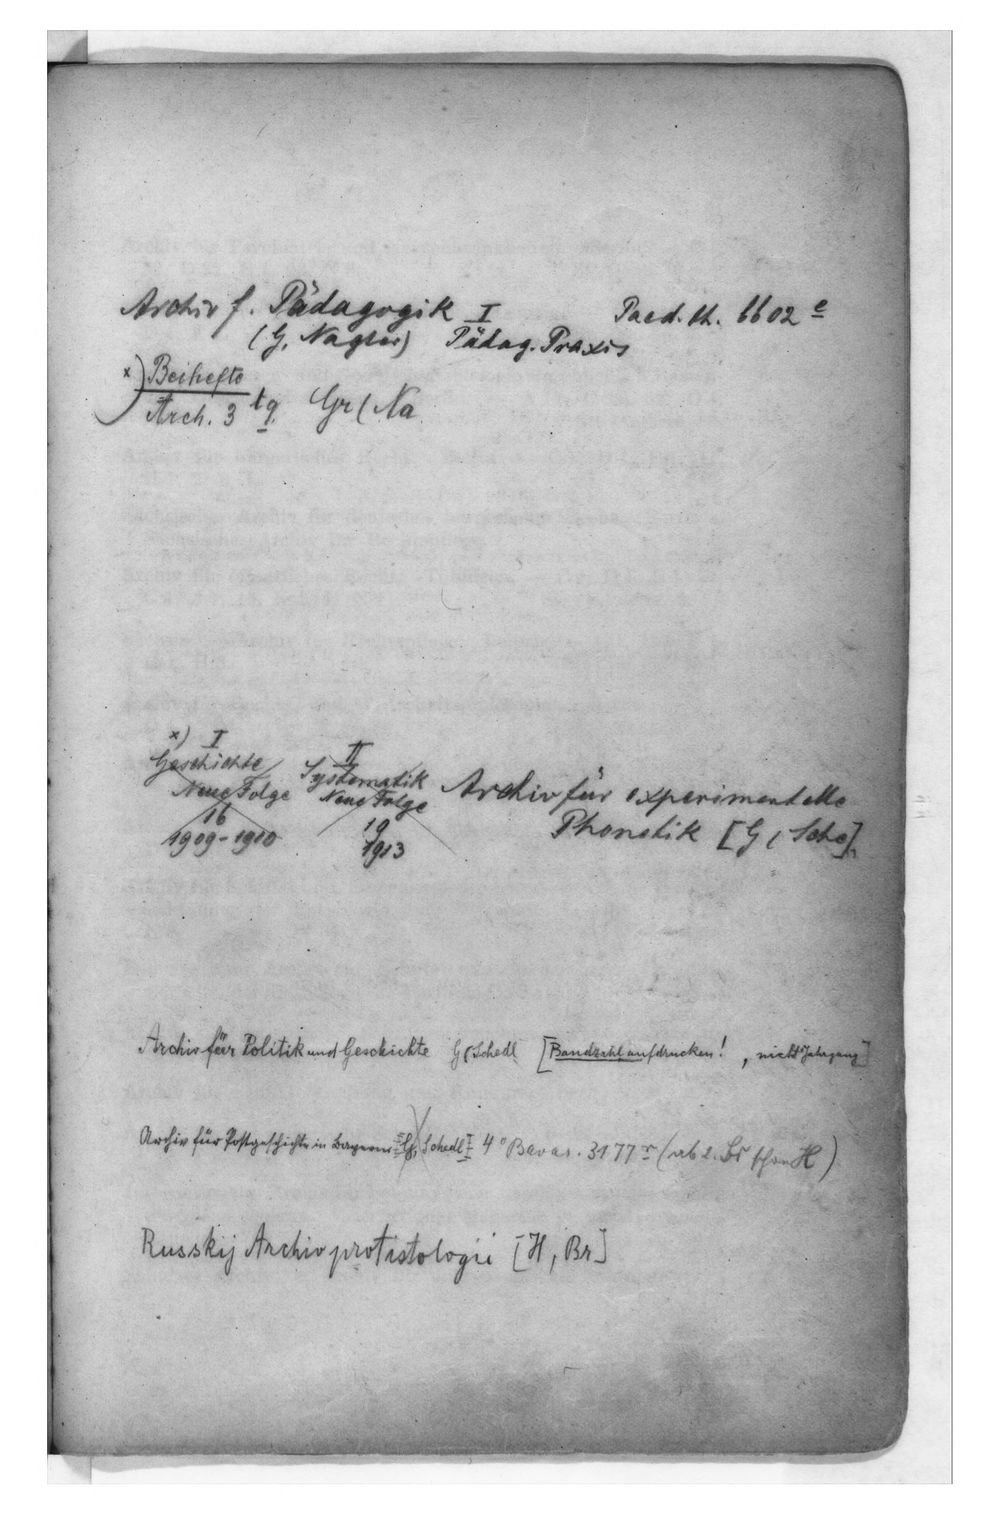 Archiv f. Pädagogik I Paed. th. 6602 e
(G, Nagler) Pädag. Praxis
x) Beihefte
Arch. 3 t q Gr ( Na
x) I
Geschichte
Neue Folge
16
1909-1910
II
Systematik
Neue Folge
19
1913
Archiv für experimentelle
Phonetik [G, Sche]
Archiv für Politik und Geschichte G ( Schedl [Bandzahl aufdrucken! , nicht Jahrgang]
Archiv für Postgeschichte in Bayern Schedl 4° Bavar. 3177 r (ab 2. Br schon H)
Russkij Archiv protistologii [H, Br]